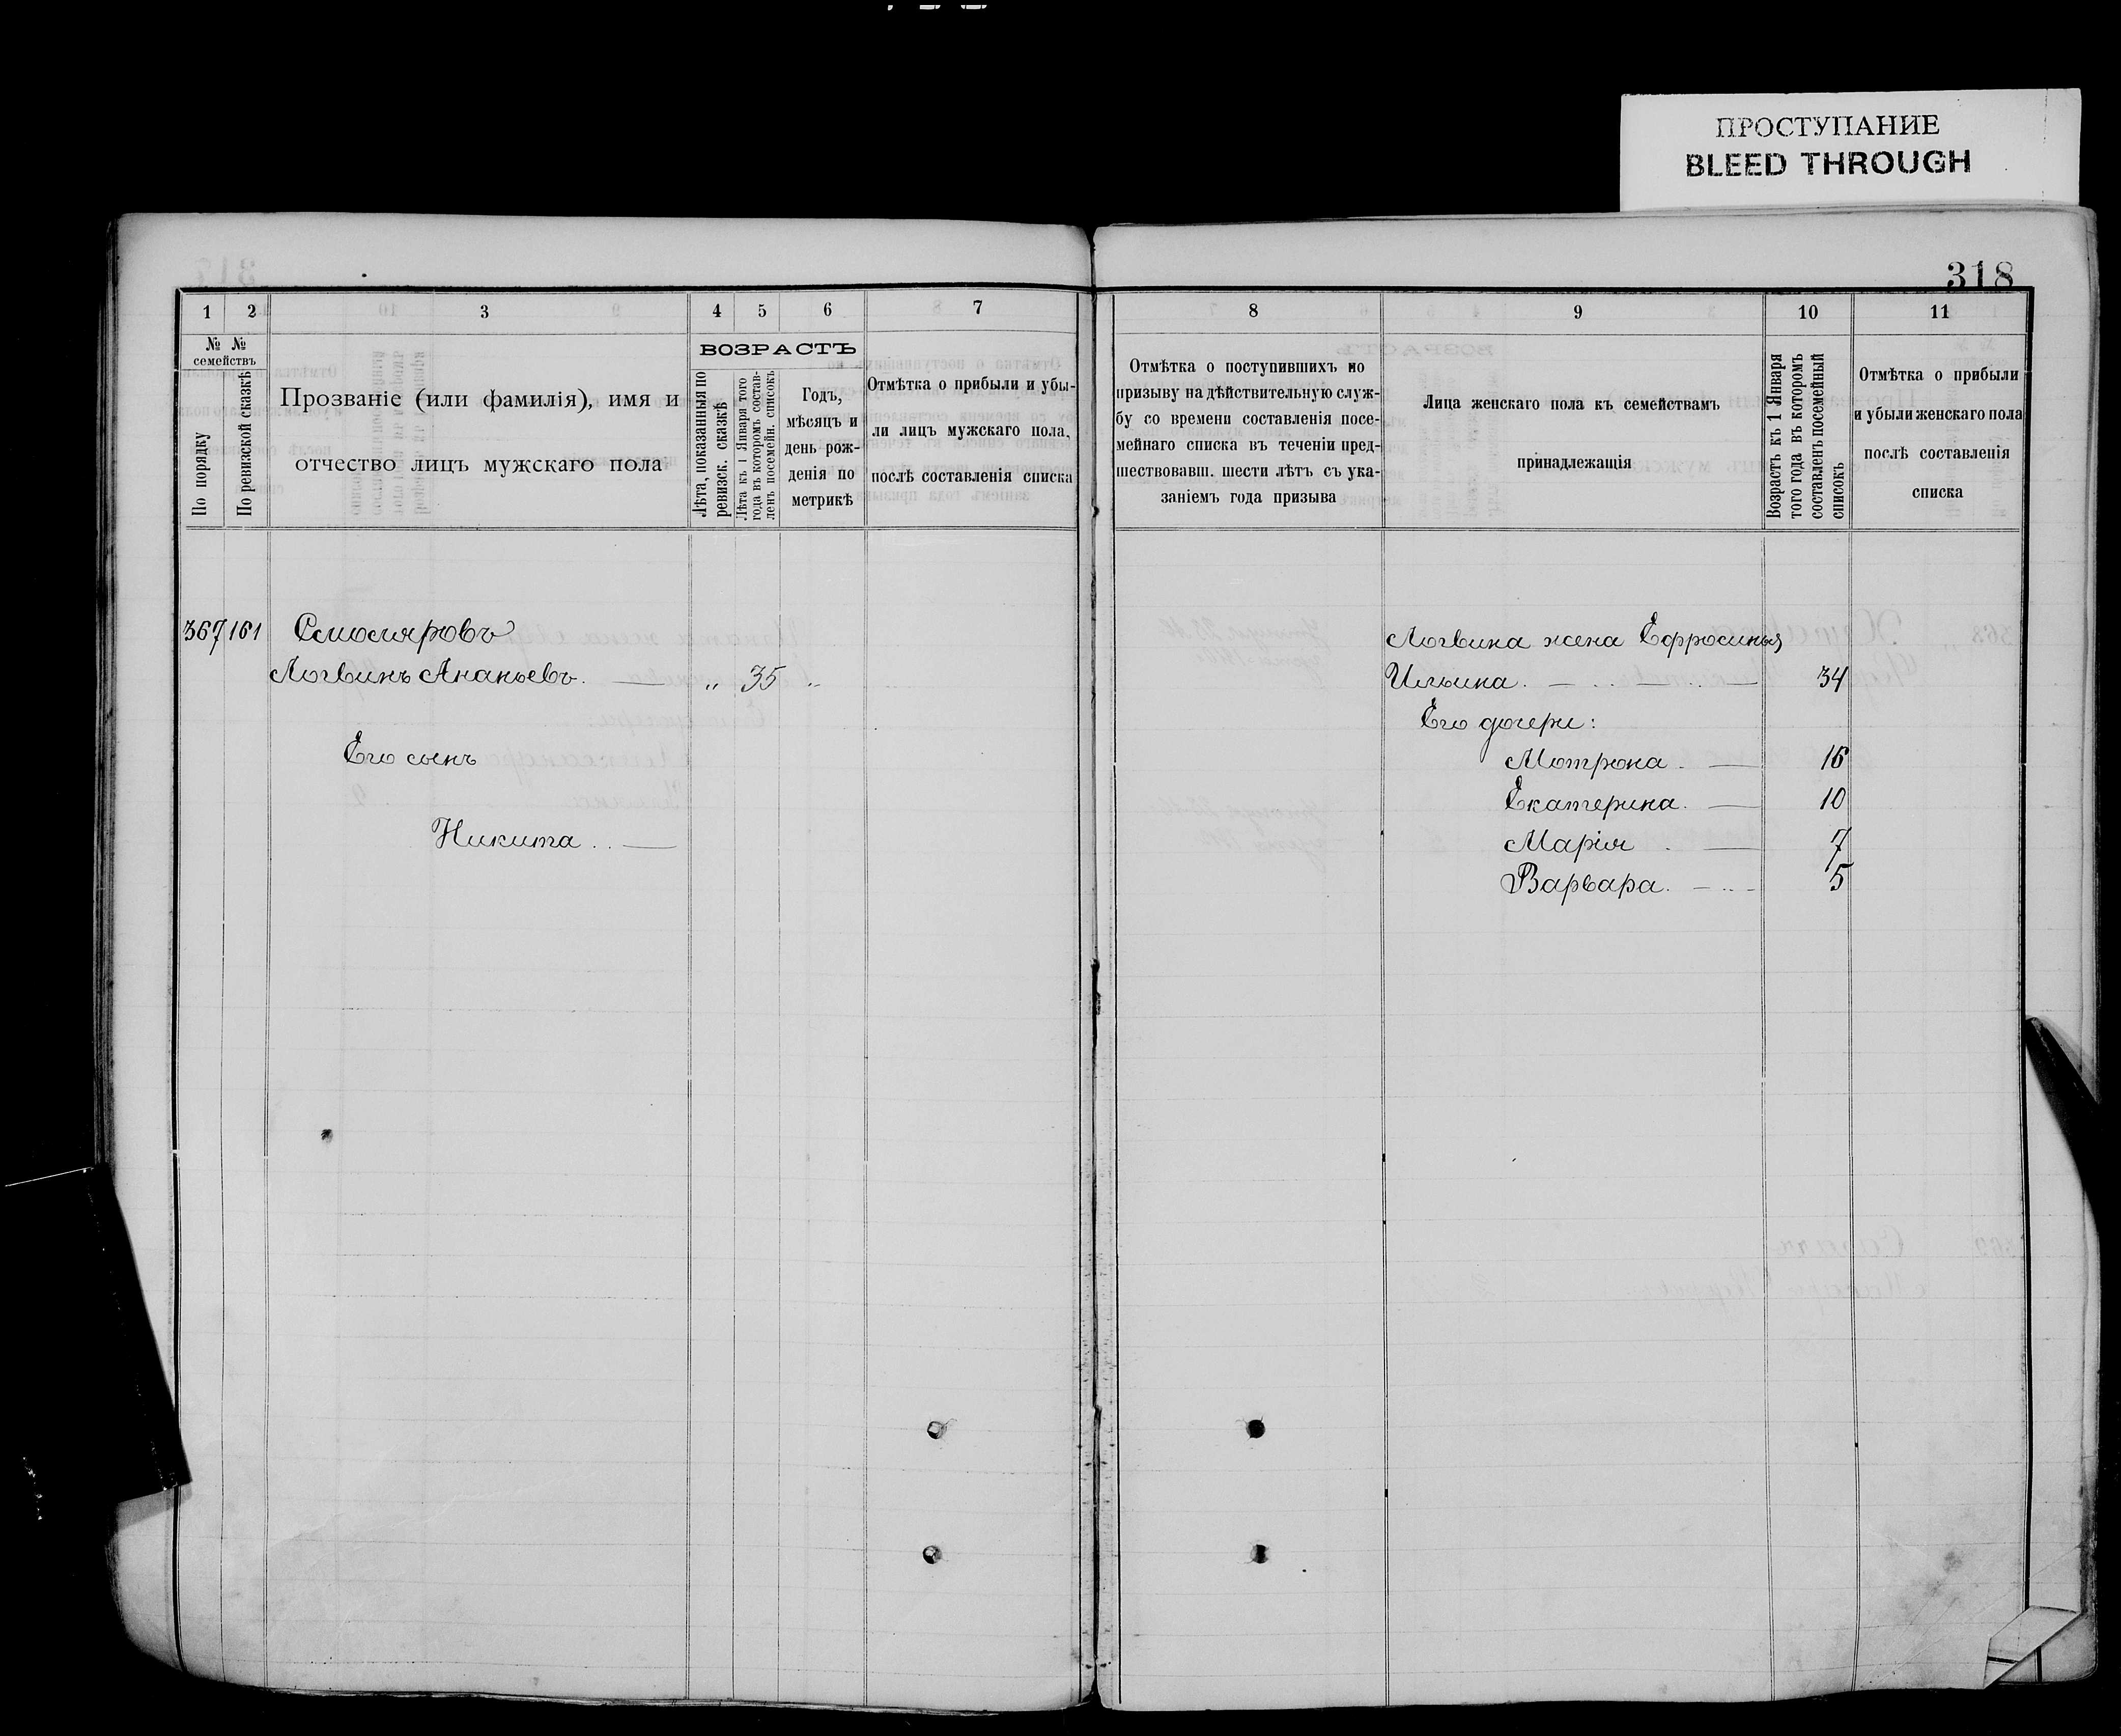 ПРОСТУПАНИЕ
BLEED THROUGH
318
1 2 3 4 5 6 7
№ № семействъ
По порядку
По ревизской сказкѣ
Прозваніе (или фамилія), имя и
отчество лицъ мужскаго пола
ВОЗРАСТЪ
Лѣта, показанныя по
ревизск. сказкѣ
Лѣта къ 1 Января того
года въ которомъ состав-
ленъ посемейн. списокъ
Годъ,
мѣсяцъ и
день рож-
денія по
метрикѣ
Отмѣтка о прибыли и убы-
ли лицъ мужскаго пола,
послѣ составленія списка
367 161
Логвинъ Ананьевъ. — „ 35 „
Его сынъ
Никита . . —
8 9 10 11
Отмѣтка о поступившихъ по
призыву на дѣйствительную служ-
бу со времени составленія посе-
мейнаго списка въ теченіи пред-
шествовавш. шести лѣтъ съ ука-
заніемъ года призыва
Лица женскаго пола къ семействамъ
принадлежащія
Возрастъ къ 1 Января
того года въ которомъ
составленъ посемейный
списокъ
Отмѣтка о прибыли
и убыли женскаго пола
послѣ составленія
списка
Логвина жена Ефросинья
Ильина. — 34
Его дочери:
Мотрона. — 16
Екатерина. — 10
Марія . — 7
Варвара. — 5